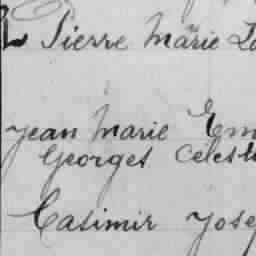 Pierre Marie
Jean Marie Em
Georges Célest
Casimir Jose